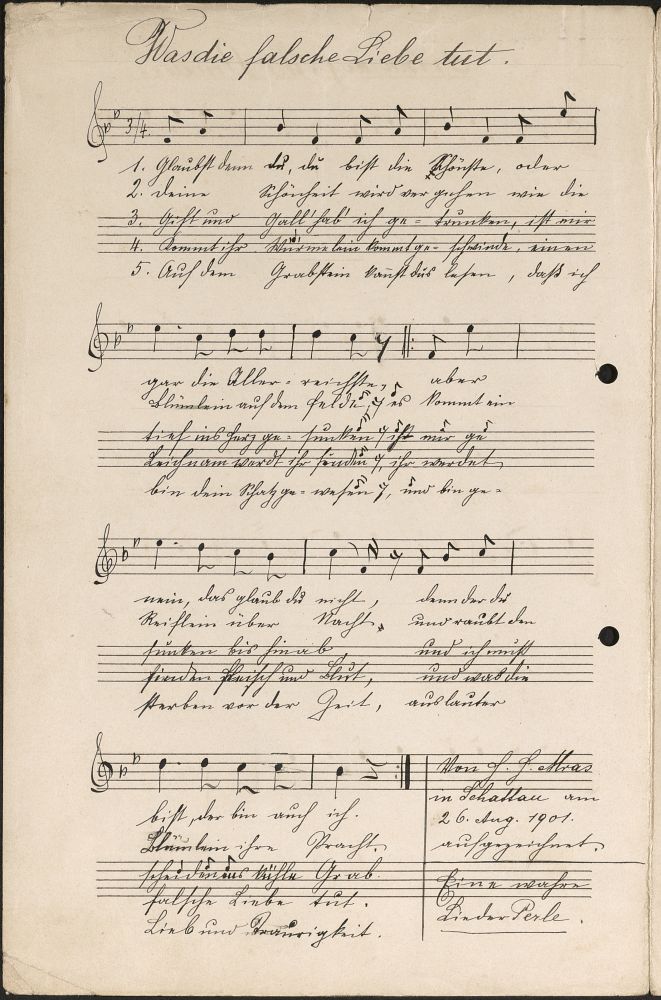 Was die falsche Liebe tut.
3/4.
1. Glaubst denn du, du bist die Schönste, oder
2. Deine Schönheit wird vergehen wie die
3. Gift und Gall' hab' ich ge-trunken, ist mir
4. Kommt ihr Würmelein kommt ge-schwinde, einen
5. Auf dem Grabstein kannst du's lesen, daß ich
gar die Aller-reichste, aber
Blümlein auf dem Felde, es kommt ein
tief ins Herz ge-sunken, ist mir ge
Leichnam werdt ihr finden, ihr werdet
bin dein Schatz ge-wesen, und bin ge-
nein, das glaub du nicht, denn der du
Reiflein über Nacht, und raubt den
sunken bis hinab, und ich muß
finden Fleisch und Blut, und was die
storben vor der Zeit, aus lauter
bist, der bin auch ich.
Blümlein ihre Pracht.
scheiden ins kühle Grab.
falsche Liebe tut.
Lieb und Traurigkeit.
Von H. J. Mras
in Schattau am
26. Aug. 1901.
aufgezeichnet.
Eine wahre
Lieder Perle.